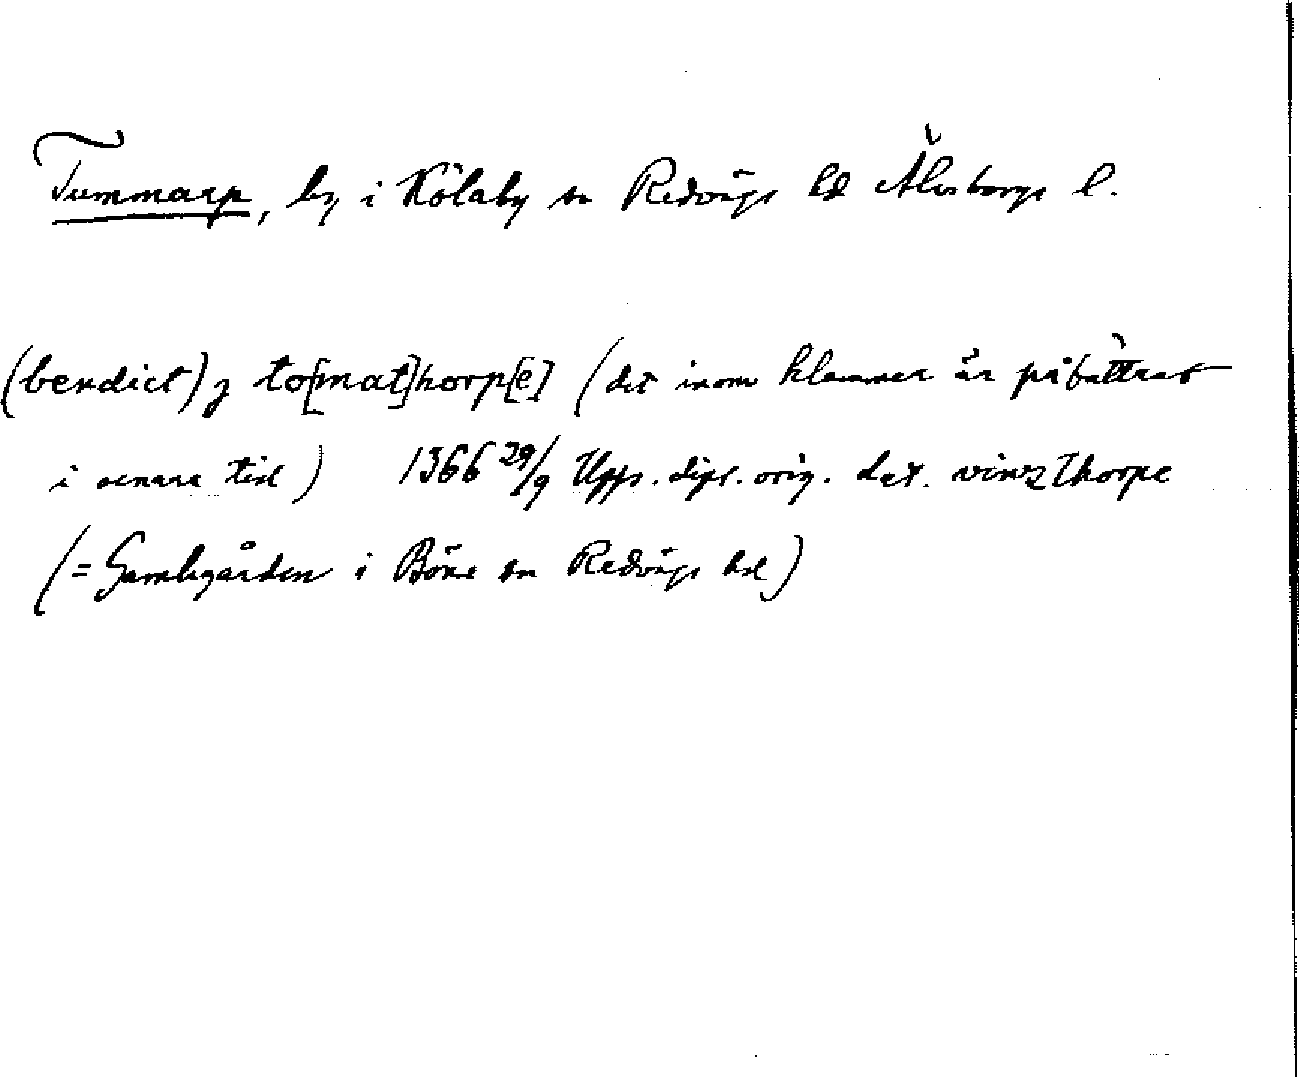 Tummarp, by i Kölaby sn Redvägs hd Älvsborgs l.
(bendict) ȝ to[mat]horp[e] (det inom klammer är påbättrat
i senare tid) 1366 29/9 Upps. dipl. orig. dat. vinzthorpe
(= Gamlegården i Böne sn Redvägs hd)